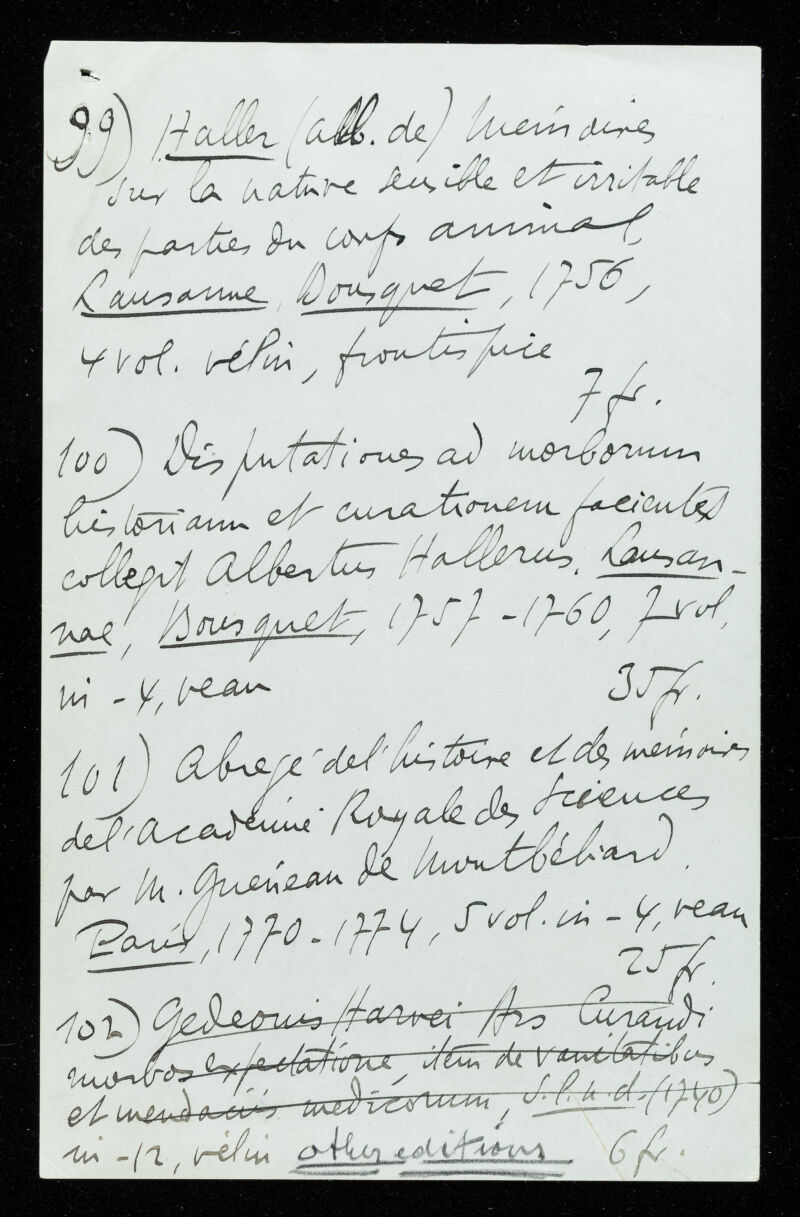 99) Haller (alb. de) Mémoires
sur la nature sensible et irritable
des parties du corps animal,
Lausanne, Bousquet, 1756,
4 vol. vélin, frontispice
7 fr.
100) Disputationes ad morborum
historiam et curationem facientes
collegit Albertus Hallerus. Lausan-
nae, Bousquet, 1757-1760, 7 vol.
in-4, veau
35 fr.
101) Abrégé de l'histoire et des mémoires
de l'Académie Royale des Sciences
par M. Guéneau de Montbéliard.
Paris, 1770-1774, 5 vol. in-4, veau
25 fr.
102) Gedeonis Harvei Ars Curandi
morbos expectatione, item de vanitatibus
et mendaciis medicorum, S.l.n.d. (1740)
in-12, vélin other editions 6 fr.